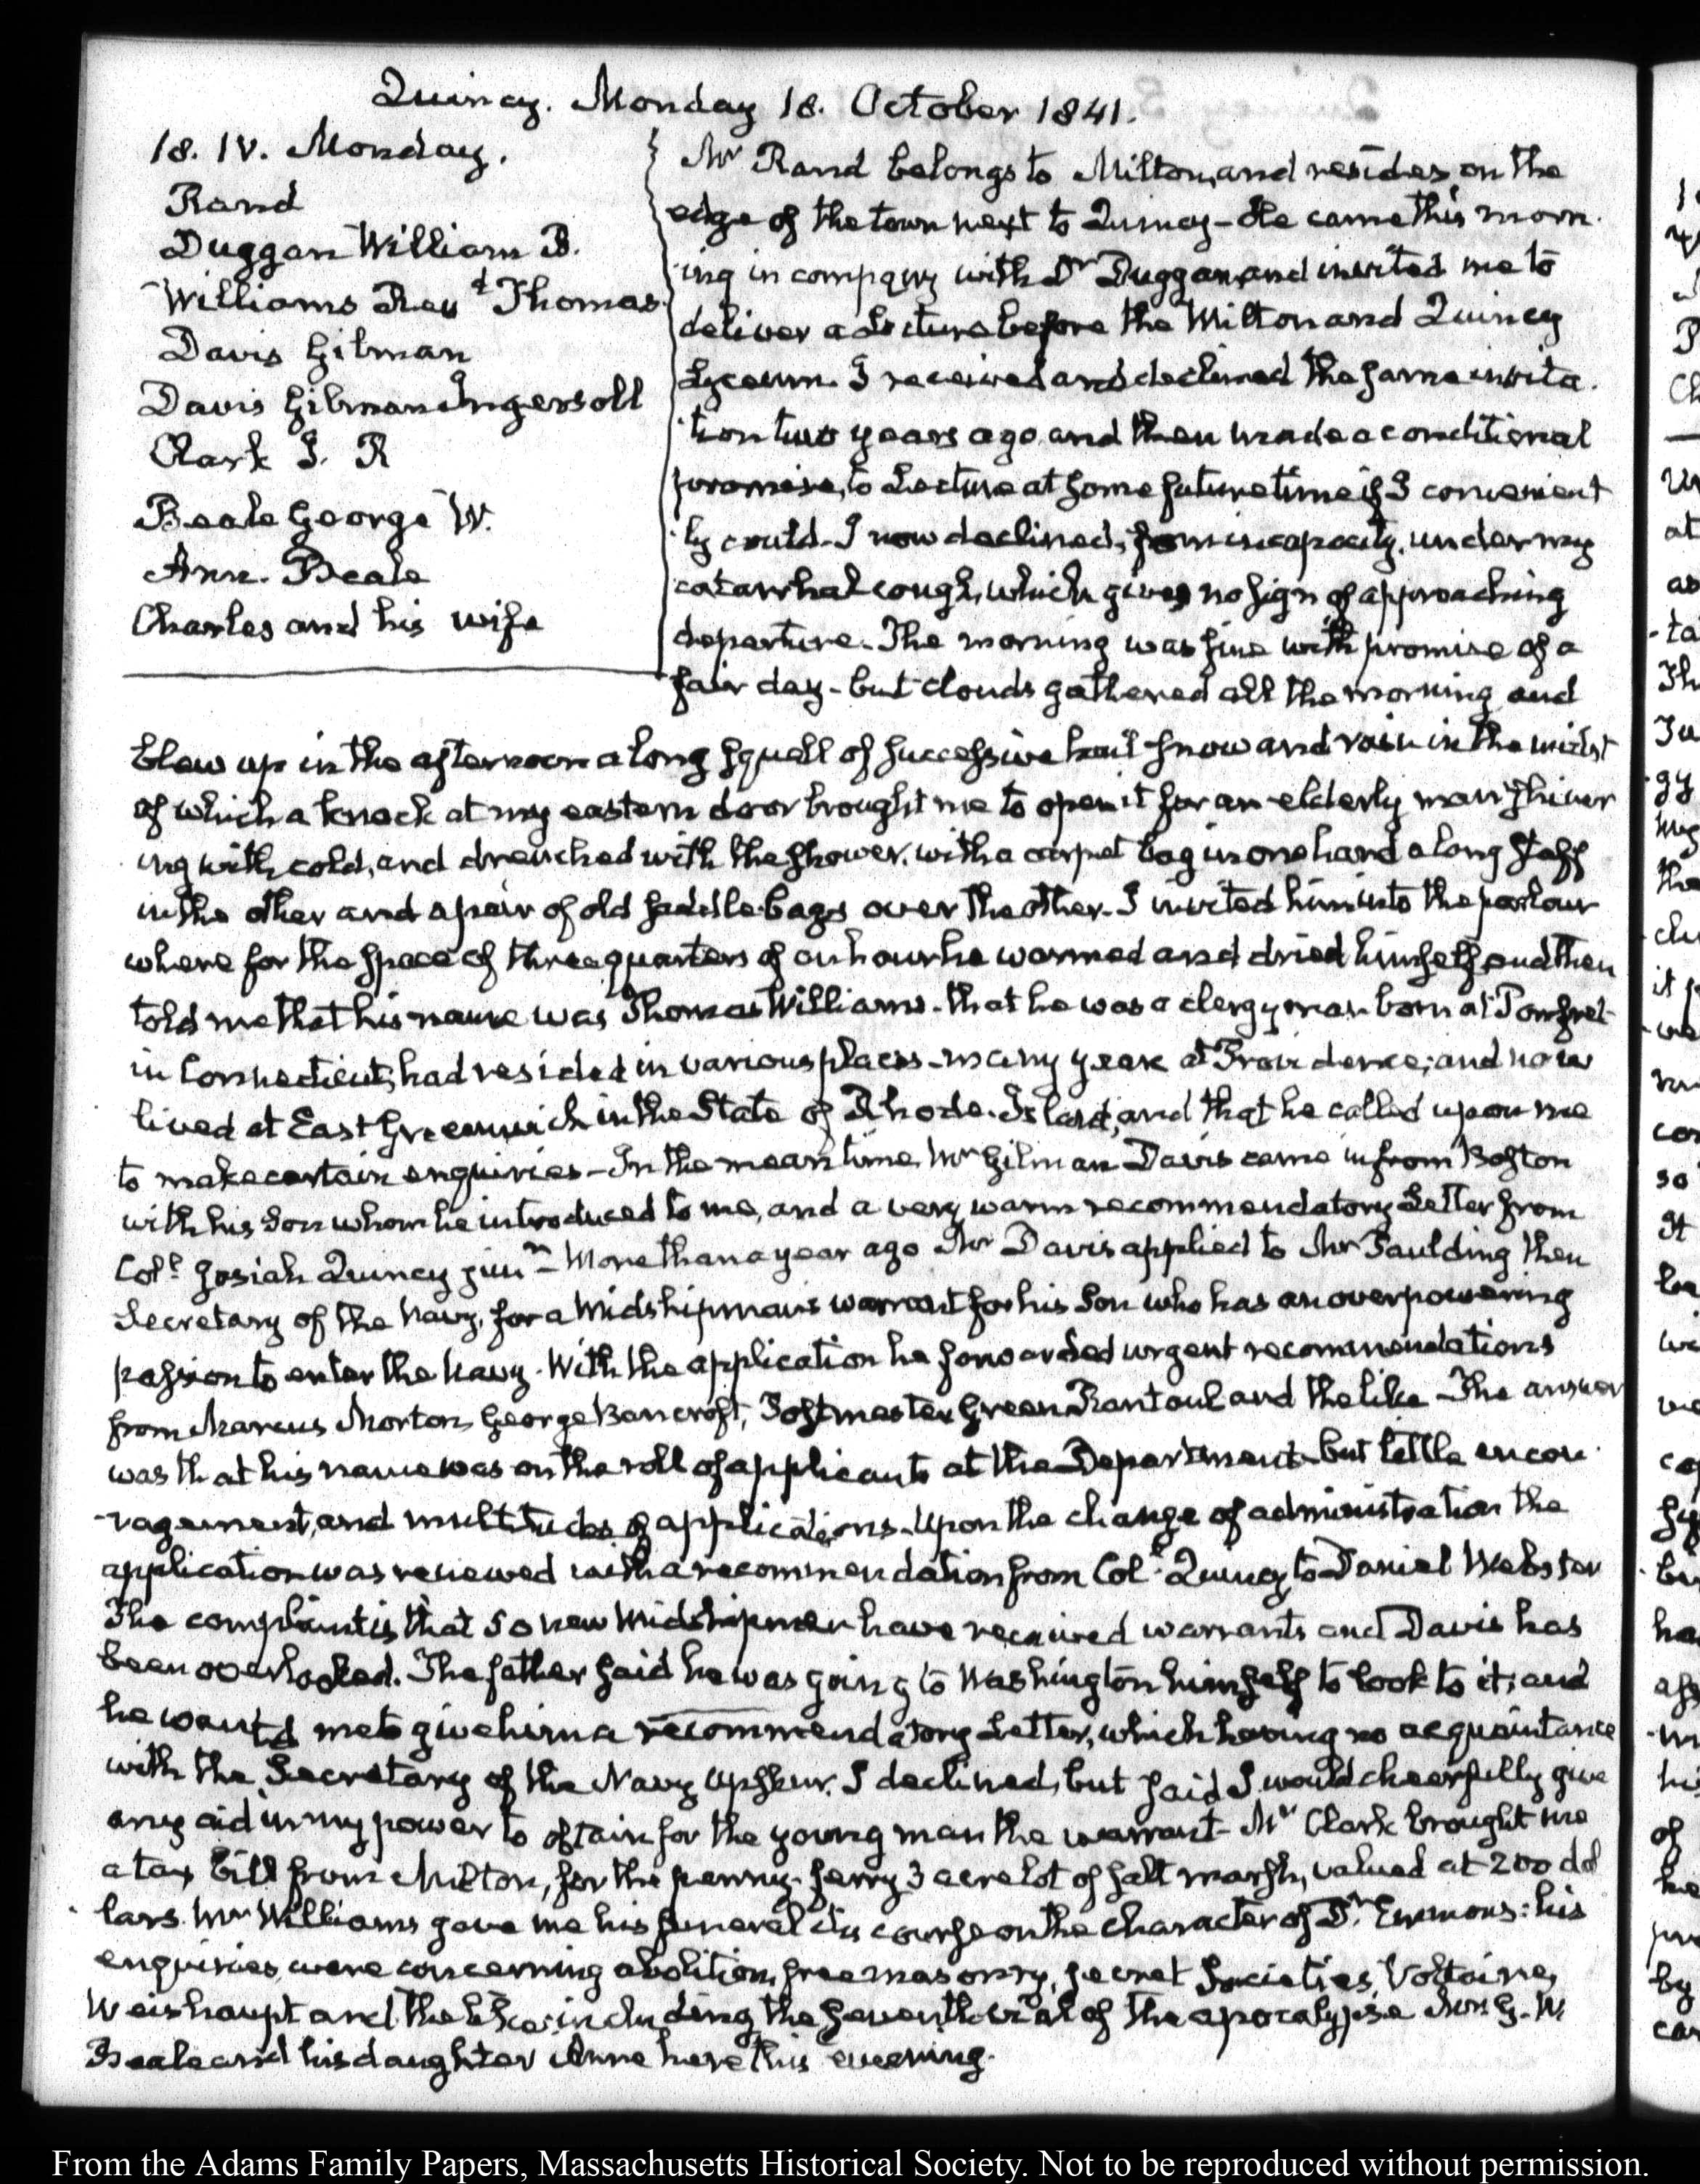 Quincy. Monday 18. October 1841.
18. IV. Monday.
Rand
Duggan William B.
Williams Revd Thomas
Davis Gilman
Davis Gilman Ingersoll
Clark J. R
Beale George W.
Ann. Beale
Charles and his wife
Mr Rand belongs to Milton, and resides on the
edge of the town next to Quincy - He came this morn-
ing in company with Dr Duggan, and invited me to
deliver a Lecture before the Milton and Quincy
Lyceum. I received and declined the same invita-
tion two years ago and then made a conditional
promise, to Lecture at some future time if I convenient
ly could - I now declined, from incapacity, under my
catarrhal cough, which gives no sign of approaching
departure. The morning was fine with promise of a
fair day - but clouds gathered all the morning and
blew up in the afternoon a long squall of successive hail snow and rain in the midst
of which a knock at my eastern door brought me to open it for an elderly man shiver
ing with cold, and drenched with the shower, with a carpet bag in one hand a long staff
in the other and a pair of old saddle bags over the other. I invited him into the parlour
where for the space of three quarters of an hour he warmed and dried himself and then
told me that his name was Thomas Williams. that he was a clergyman born at Pomfret
in Connecticut, had resided in various places - many years at Providence; and now
lived at East Greenwich in the State of Rhode-Island, and that he called upon me
to make certain enquiries - In the mean time, Mr Gilman Davis came in from Boston
with his Son whom he introduced to me, and a very warm recommendatory Letter from
Coll Josiah Quincy junr - More than a year ago Mr Davis applied to Mr Paulding then
Secretary of the Navy, for a Midshipman's warrant for his Son who has an overpowering
passion to enter the Navy. With the application he forwarded urgent recommendations
from Marcus Morton, George Bancroft, Postmaster Green Rantoul and the like - The answer
was that his name was on the roll of applicants at the Department - but little encou-
-ragement, and multitudes of applications. Upon the change of administration the
application was renewed with a recommendation from Coll Quincy to Daniel Webster
The complaint is that 50 new Midshipmen have received warrants and Davis has
been overlooked. The father said he was going to Washington himself to look to it; and
he wanted me to give him a recommendatory Letter, which having no acquaintance
with the Secretary of the Navy Upshur, I declined, but said I would cheerfully give
any aid in my power to obtain for the young man the warrant - Mr Clark brought me
a tax bill from Milton, for the penny-ferry 3 acre lot of salt marsh, valued at 200 dol
lars. Mr Williams gave me his funeral discourse on the character of Dr Emmons: his
enquiries were concerning abolition, freemasonry, secret Societies, Voltaire,
Weishaupt and the like, including the seventh vial of the apocalypse Mr G. W
Beale and his daughter Anne here this evening.
From the Adams Family Papers, Massachusetts Historical Society. Not to be reproduced without permission.